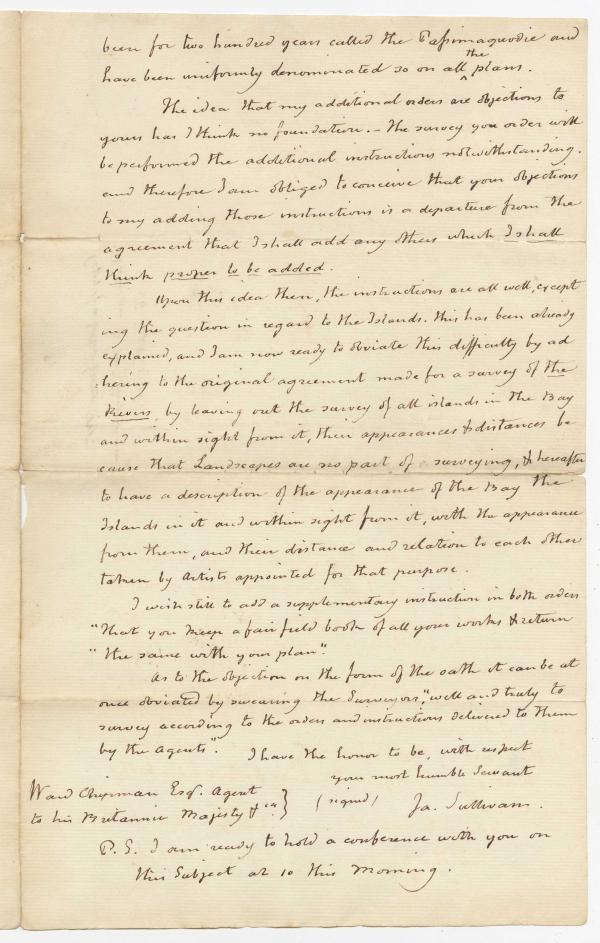 been for two hundred years called the Passimaquodie and
have been uniformly denominated so on all the plans.
The idea that my additional orders are objections to
yours has I think no foundation. – the survey you order will
be performed the additional instructions notwithstanding.
and therefore I am obliged to conceive that your objections
to my adding those instructions is a departure from the
agreement that I shall add any others which I shall
think proper to be added.
Upon this idea then, the instructions are all well, except
ing the question in regard to the Islands. this has been already
explained, and I am now ready to obviate this difficulty by ad
:hering to the original agreement made for a survey of the
Rivers, by leaving out the survey of all islands in the Bay
and within sight from it, their appearances & distances be
cause that Landscapes are no part of surveying, & hereafter
to have a description of the appearance of the Bay the
Islands in it and within sight from it, with the appearance
from them, and their distance and relation to each other
taken by Artists appointed for that purpose.
I wish still to add a supplementary instruction in both orders
"That you keep a fair field book of all your works & return
" the same with your plan".
As to the objection on the form of the oath it can be at
once obviated by swearing the Surveyors, "well and truly to
survey according to the orders and instructions delivered to them
by the Agents".
I have the honor to be, with respect
your most humble Servant
Ward Chipman Esqr. Agent
to his Britannic Majesty &ca }
(signed) Ja. Sullivan.
P.S. I am ready to hold a conference with you on
this Subject at 10 this Morning.